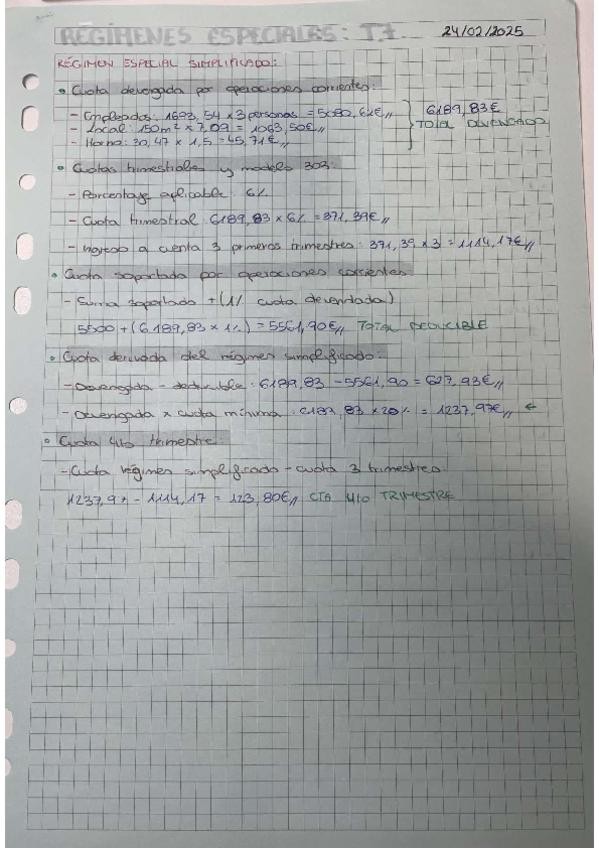 REGÍMENES ESPECIALES: T.7 24/02/2025
RÉGIMEN ESPECIAL SIMPLIFICADO:
• Cuota devengada por operaciones corrientes:
- Empleados: 1693,54 x 3 personas = 5080,62€,,
- Local: 150m² x 7,09 = 1063,50€,,
- Horno: 30,47 x 1,5 = 45,71€,,
6189,83€
TOTAL DEVENGADO
• Cuotas trimestrales y modelo 303:
- Porcentaje aplicable: 6%
- Cuota trimestral: 6189,83 x 6% = 371,39€,,
- Ingreso a cuenta 3 primeros trimestres: 371,39 x 3 = 1114,17€,,
• Cuota soportada por operaciones corrientes
- Suma soportado + (1% cuota devengada)
5500 + (6.189,83 x 1%) = 5561,90€,, TOTAL DEDUCIBLE
• Cuota derivada del régimen simplificado:
- Devengada - deducible: 6189,83 - 5561,90 = 627,93€,,
- Devengada x cuota mínima: 6189,83 x 20% = 1237,97€,, ←
• Cuota 4to trimestre:
- Cuota régimen simplificado - cuota 3 trimestres:
1237,97 - 1114,17 = 123,80€,, CTA 4to TRIMESTRE